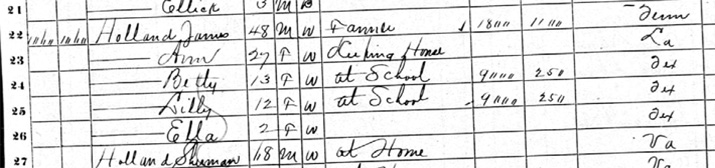 21 Ellick 3 M B
22 Holland James 48 M W Farmer 1800 1100 Tenn
23 Ann 27 F W Keeping House La
24 Betty 13 F W at School 9000 250 Tex
25 Lilly 12 F W at School 9000 250 Tex
26 Ella 2 F W Tex
27 Holland 68 M W at Home Va
Va